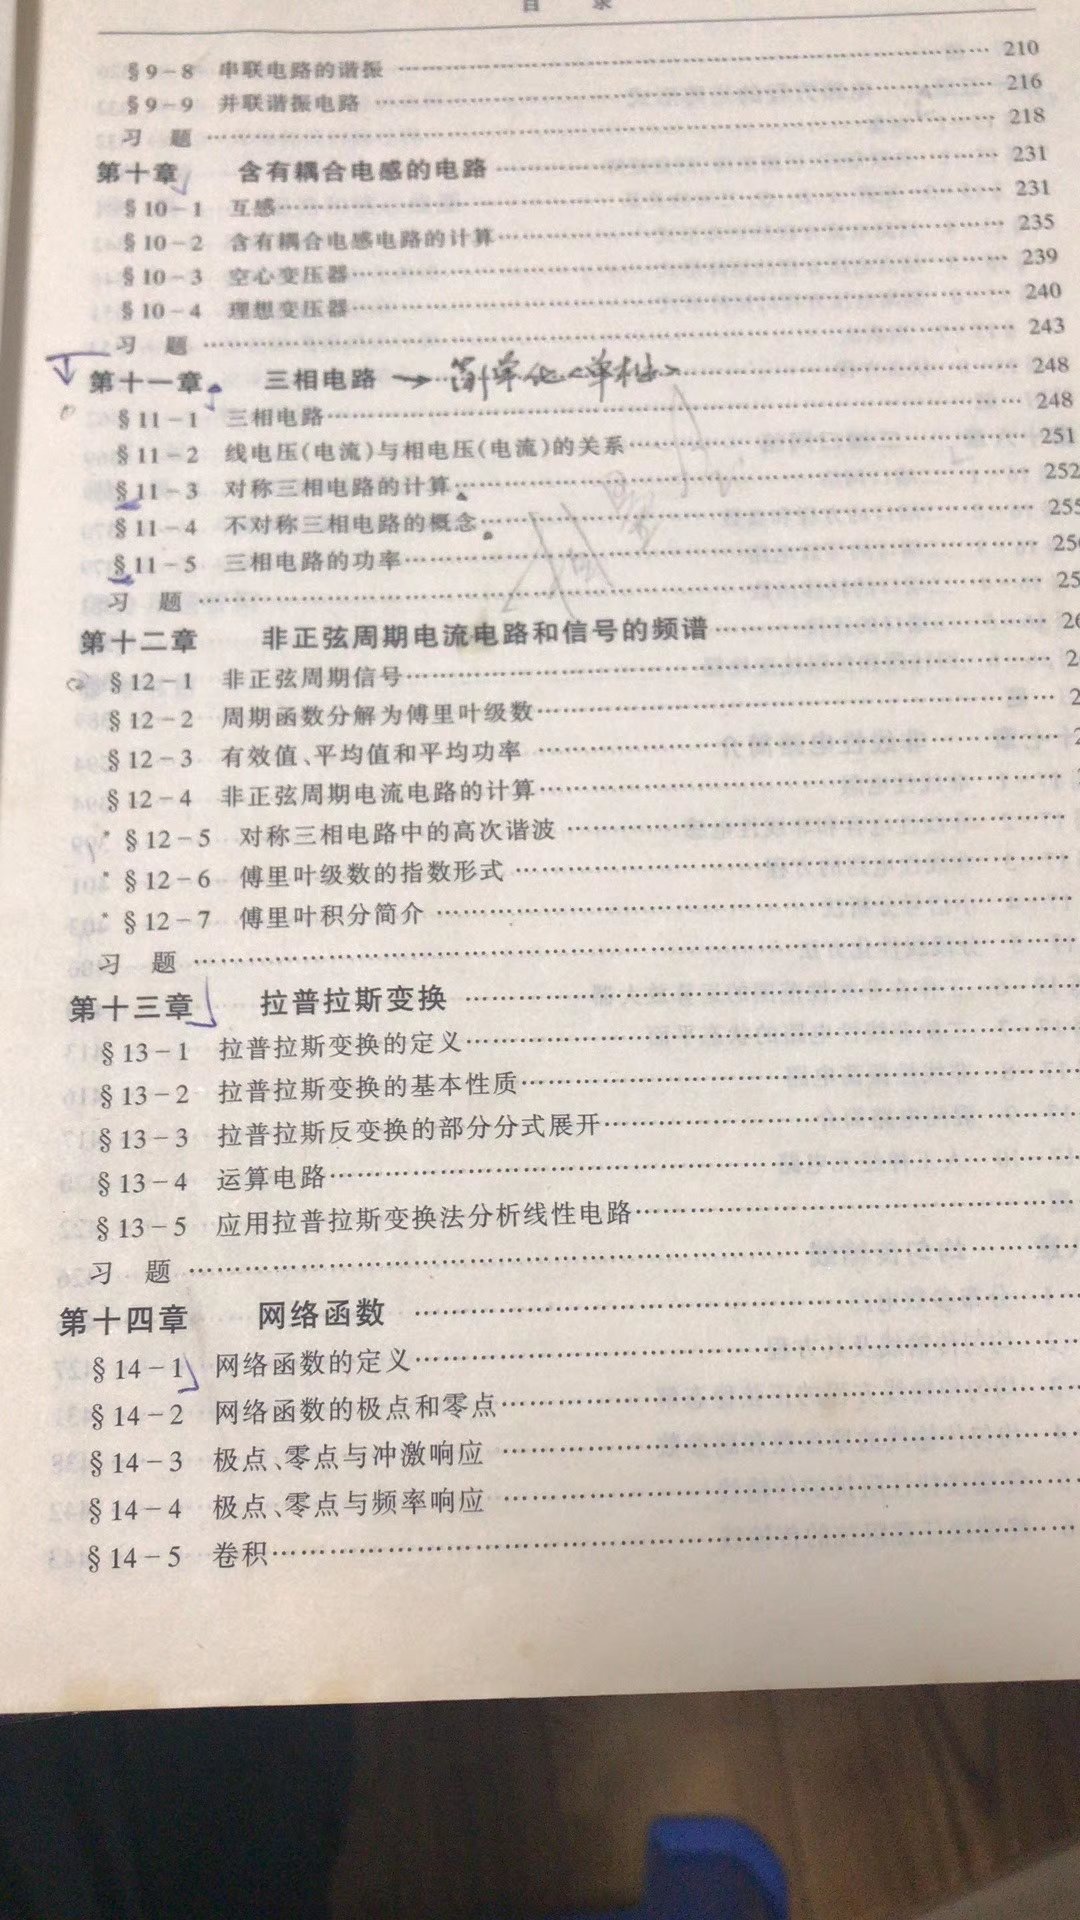 目 录
§9-8 串联电路的谐振 …… 210
§9-9 并联谐振电路 …… 216
习 题 …… 218
第十章 含有耦合电感的电路 …… 231
§10-1 互感 …… 231
§10-2 含有耦合电感电路的计算 …… 235
§10-3 空心变压器 …… 239
§10-4 理想变压器 …… 240
习 题 …… 243
第十一章 三相电路 → 简单化<单相> …… 248
§11-1 三相电路 …… 248
§11-2 线电压(电流)与相电压(电流)的关系 …… 251
§11-3 对称三相电路的计算 …… 252
§11-4 不对称三相电路的概念 …… 255
§11-5 三相电路的功率 ……
习 题 ……
第十二章 非正弦周期电流电路和信号的频谱 ……
§12-1 非正弦周期信号 ……
§12-2 周期函数分解为傅里叶级数 ……
§12-3 有效值、平均值和平均功率 ……
§12-4 非正弦周期电流电路的计算 ……
*§12-5 对称三相电路中的高次谐波 ……
*§12-6 傅里叶级数的指数形式 ……
*§12-7 傅里叶积分简介 ……
习 题 ……
第十三章 拉普拉斯变换 ……
§13-1 拉普拉斯变换的定义 ……
§13-2 拉普拉斯变换的基本性质 ……
§13-3 拉普拉斯反变换的部分分式展开 ……
§13-4 运算电路 ……
§13-5 应用拉普拉斯变换法分析线性电路 ……
习 题 ……
第十四章 网络函数 ……
§14-1 网络函数的定义 ……
§14-2 网络函数的极点和零点 ……
§14-3 极点、零点与冲激响应 ……
§14-4 极点、零点与频率响应 ……
§14-5 卷积 ……